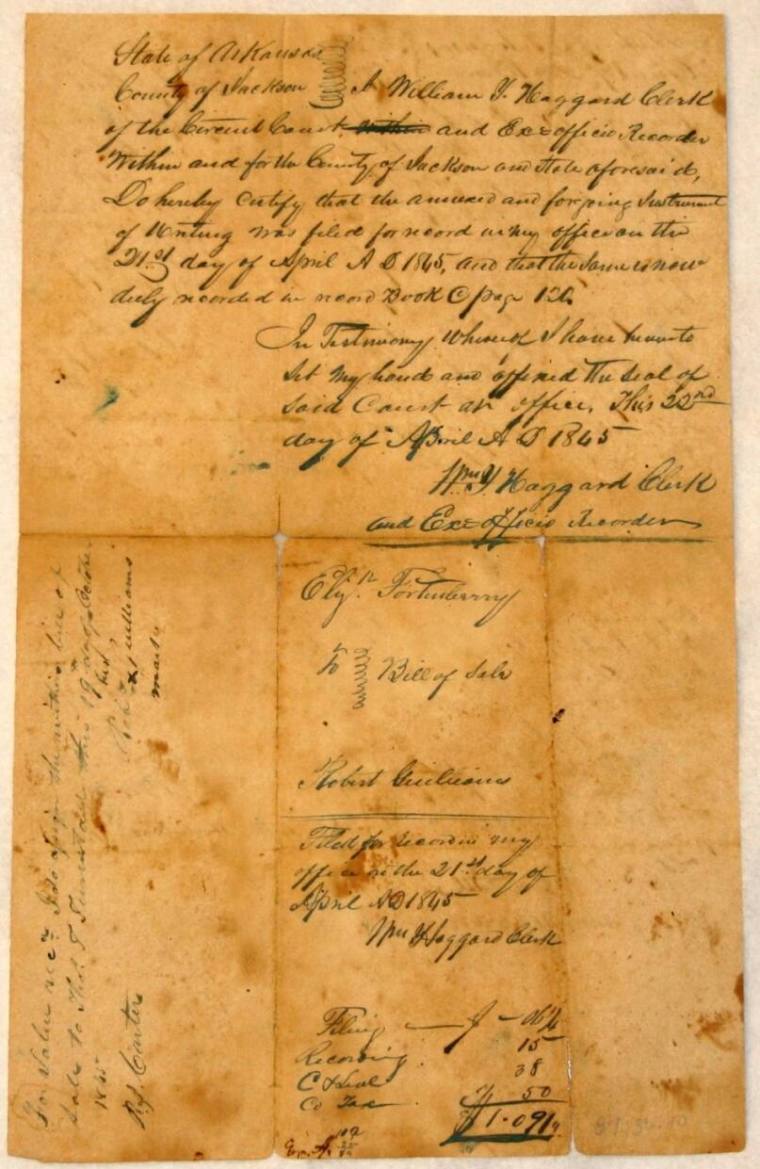 State of Arkansas
County of Jackson I William Y. Haggard Clerk
of the Circuit Court within and Ex=officio Recorder
Within and for the County of Jackson and State aforesaid,
Do hereby Certify that the annexed and forgoing Instrument
of Writing was filed for record in my office on the
21st day of April A D 1845, and that the same is now
duly recorded in record Book C page 126.
In Testimony Whereof I have hereunto
set my hand and affixed the seal of
said Court at office, This 22nd
day of April A D 1845
Wm Y Haggard Clerk
and Ex=officio Recorder
Elijh Fortenberry
To
Bill of Sale
Robert Guilliams
Filed for record in my
office on the 21st day of
April AD 1845
Wm Y Haggard Clerk
Filing 06¼
Recording 15
C & Seal 38
Co Tax 50
$1.09¼
For Value recd I do assign the within bill of
Sale to Thos. T. this 19 day of October
1845
his
x
mark
R. J. Carter